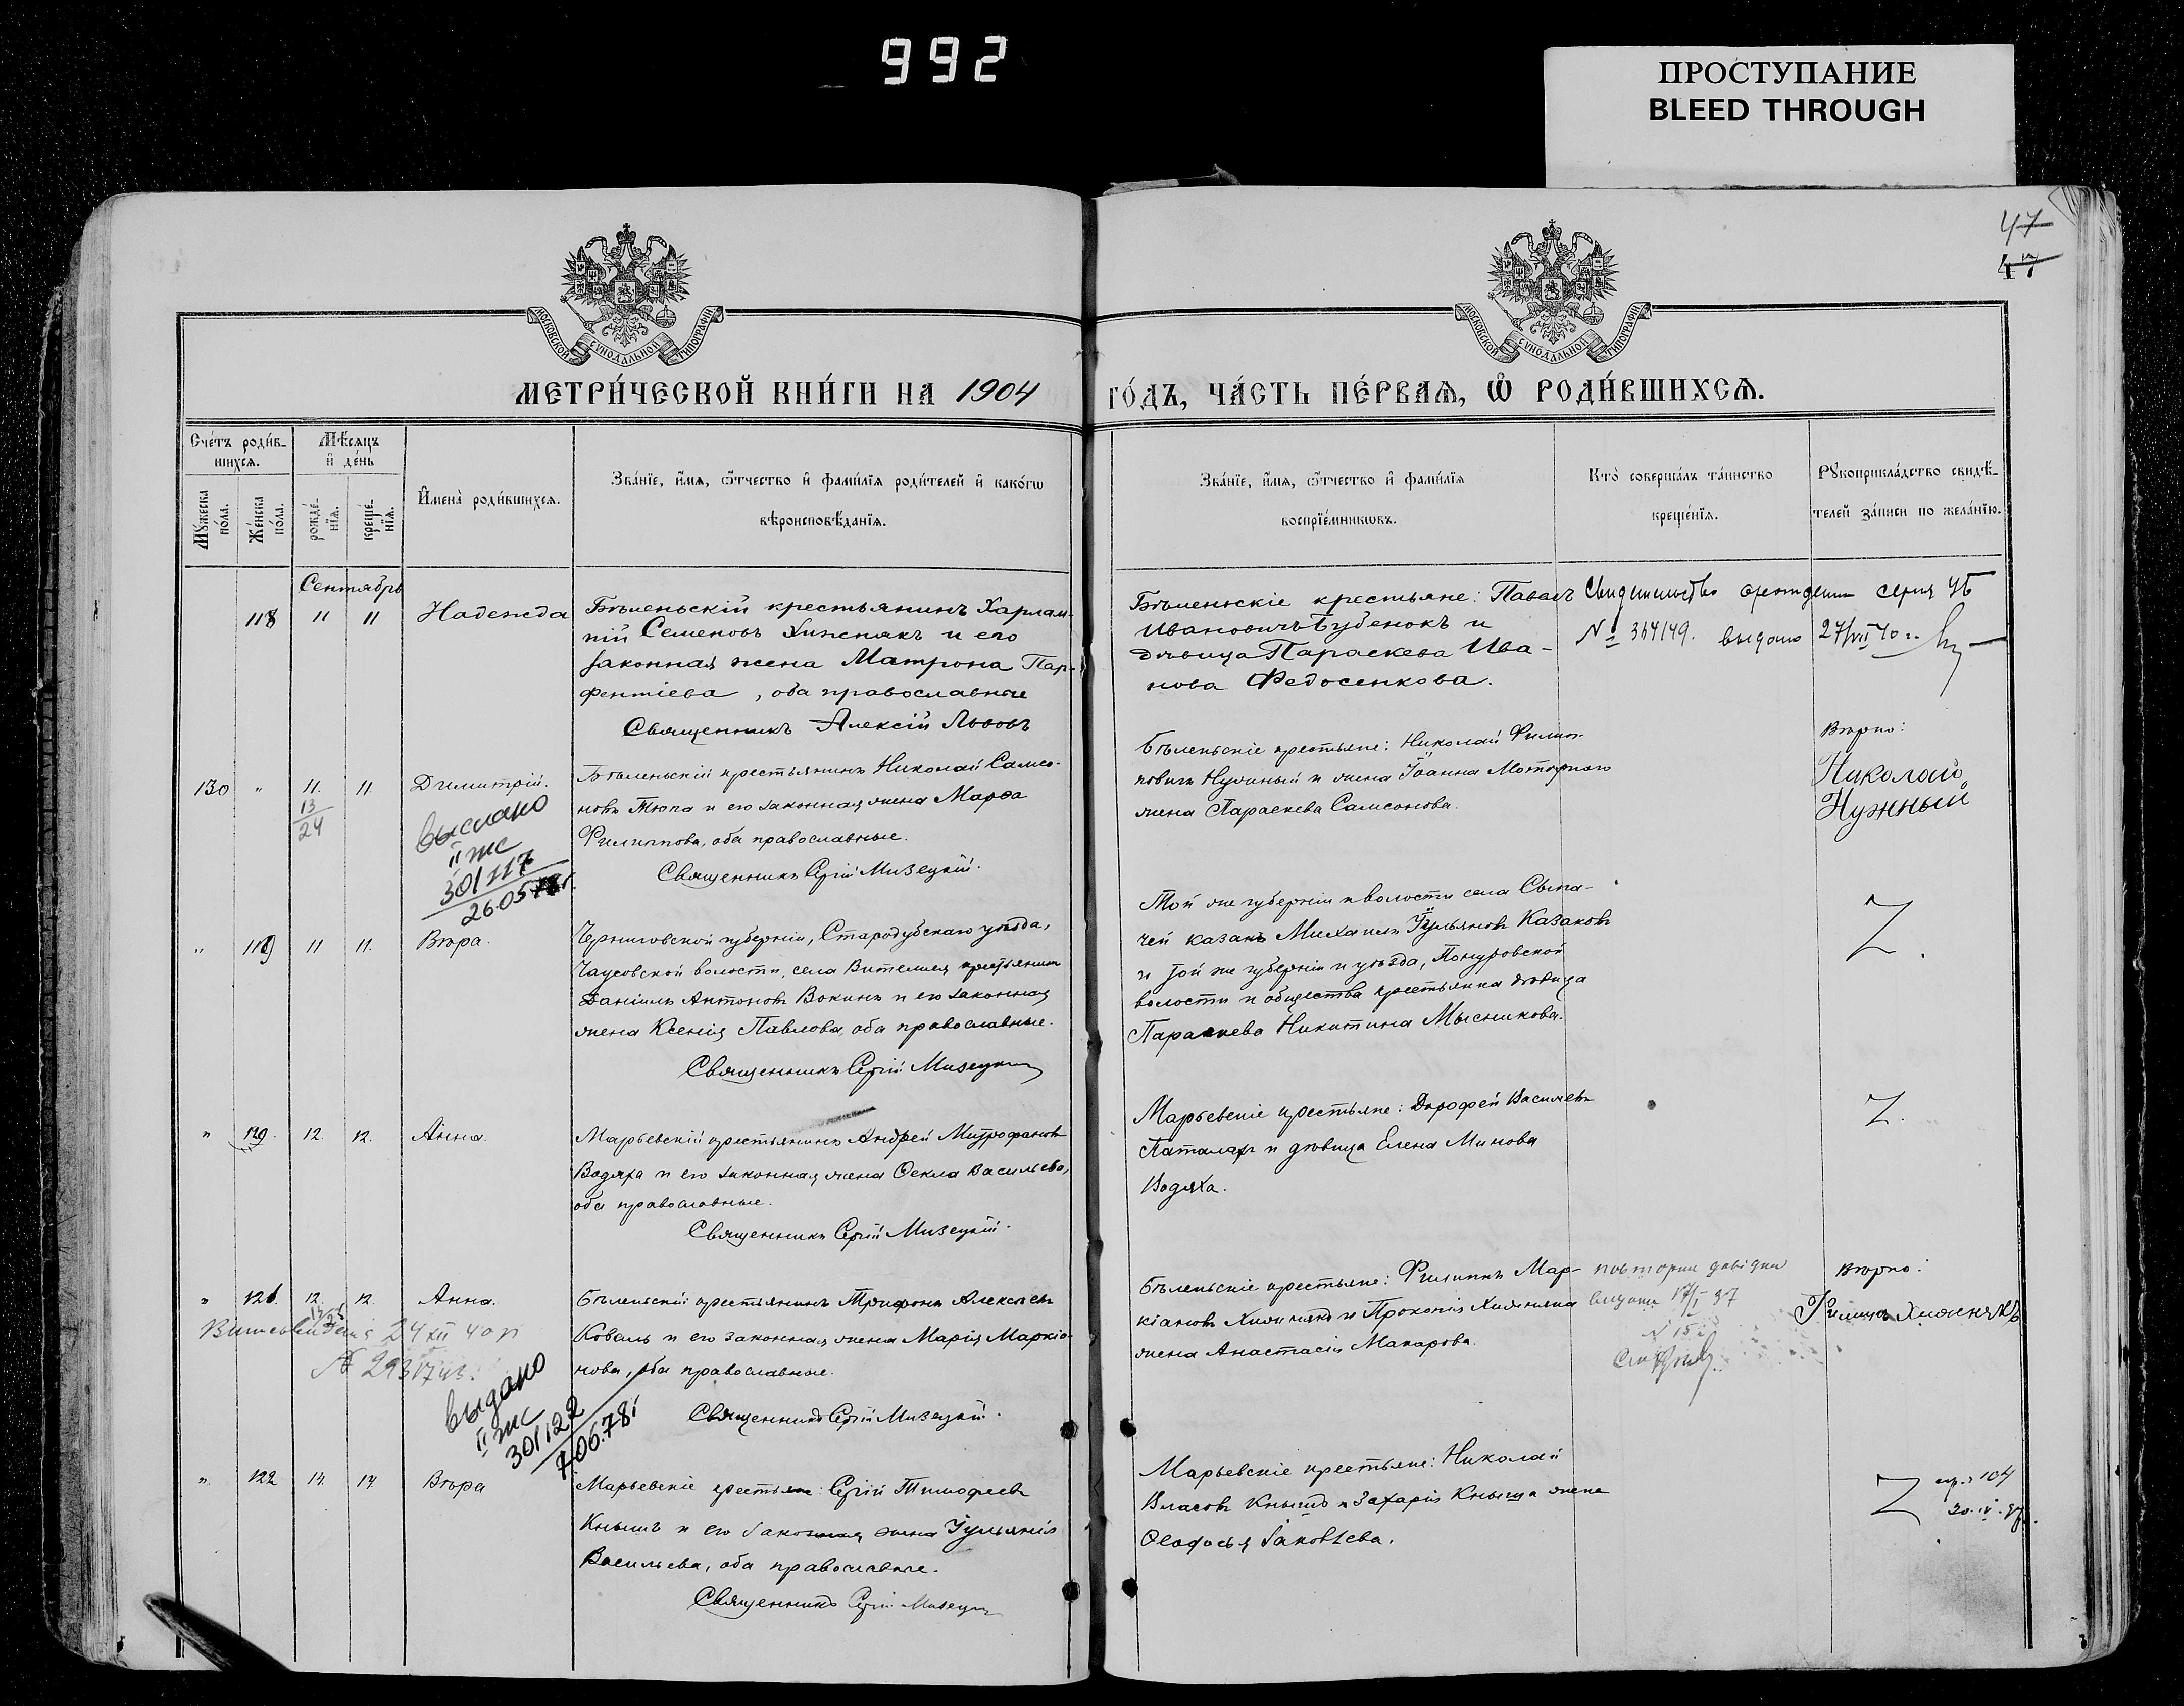 992
ПРОСТУПАНИЕ
BLEED THROUGH
47
47
МОСКОВСКОЙ СУНОДАЛЬНОЙ ТИПОГРАФІИ
МОСКОВСКОЙ СУНОДАЛЬНОЙ ТИПОГРАФІИ
МЕТРИ́ЧЕСКОЙ КНИ́ГИ НА 1904
ГО́ДЪ, ЧА́СТЬ ПЕ́РВАѦ, Ѿ РОДИ́ВШИХСѦ.
Сче́тъ роди́в-
шихсѧ.
Мѣ́сяцъ
и҆ де́нь
Мꙋ́жеска по́ла.
Же́нска по́ла.
рожде́-нїѧ.
креще́-нїѧ.
И҆мена̀ роди́вшихсѧ.
Зва́нїе, и҆́мѧ, ѻ҆́тчество и҆ фами́лїѧ роди́телей и҆ како́гѡ
вѣроисповѣ́данїѧ.
Зва́нїе, и҆́мѧ, ѻ҆́тчество и҆ фами́лїѧ
воспрїе́мникѡвъ.
Кто̀ соверша́лъ та́инство
креще́нїѧ.
Рꙋкоприкла́дство свидѣ́-
телей за́писи по жела́нїю.
Сентябрь
118 11 11 Надежда
Бѣленьскій крестьянинъ Харлам-
пій Семеновъ Хижнякъ и его
законная жена Матрона Пар-
фентіева, оба православные
Священникъ Алексій Львовъ
Бѣленьскіе крестьяне: Павелъ
Ивановичъ Бубенокъ и
дѣвица Параскева Ива-
нова Федосенкова.
Свидительство о рождении серия УБ
№ 364149. выдано 27/VII 40 г.
130 " 11. 11. Димитрій.
13
24
выслано
II жс
301117
26.05.78г.
Бѣленьскій крестьянинъ Николай Самсо-
новъ Тюпа и его законная жена Марѳа
Филиппова, оба православные.
Священникъ Сергій Мизецкій.
Бѣленьскіе крестьяне: Николай Филип-
повичъ Нужный и жена Іоанна Моторнаго
жена Параскева Самсонова.
Вѣрно:
Николай
Нужный
" 119 11 11. Вѣра.
Черниговской губерніи, Стародубскаго уѣзда,
Чаусовской волости, села Вителмы крестьянинъ
Даніилъ Антоновъ Вокинъ и его законная
жена Ксенія Павлова, оба православные.
Священникъ Сергій Мизецкій
Той же губерніи и волости села Сыча-
чей казакъ Михаилъ Іульяновъ Казаковъ
и той же губерніи и уѣзда, Понуровской
волости и общества крестьянка дѣвица
Параскева Никитина Мысникова.
Z.
" 120. 12. 12. Анна.
Марьевскій крестьянинъ Андрей Митрофановъ
Водяха и его законная жена Ѳекла Васильева,
оба православные.
Священникъ Сергій Мизецкій.
Марьевскіе крестьяне: Дороѳей Васильевъ
Паталахъ и дѣвица Елена Минова
Водяха.
Z.
" 121. 12. 12. Анна.
24 XII 40 г
№ 2931743.
выдано
II жс
301122
7.06.78г
Бѣленьскій крестьянинъ Трифонъ Алексѣевъ
Коваль и его законная жена Марія Маркіа-
нова, оба православные.
Священникъ Сергій Мизецкій.
Бѣленьскіе крестьяне: Филиппъ Мар-
кіановъ Хижнякъ и Прокопія Хижняка
жена Анастасія Макарова.
повторни довідки
видано 17/I 37
Вѣрно:
Филипъ Хижнякъ
" 122 14. 14. Вѣра
Марьевскіе крестьяне: Сергій Тимофеевъ
Кнышъ и его законная жена Іульянія
Васильева, оба православные.
Священникъ Сергій Мизецкій
Марьевскіе крестьяне: Николай
Власовъ Кнышъ и Захарія Кныша жена
Ѳеодосья Іаковлева.
Z